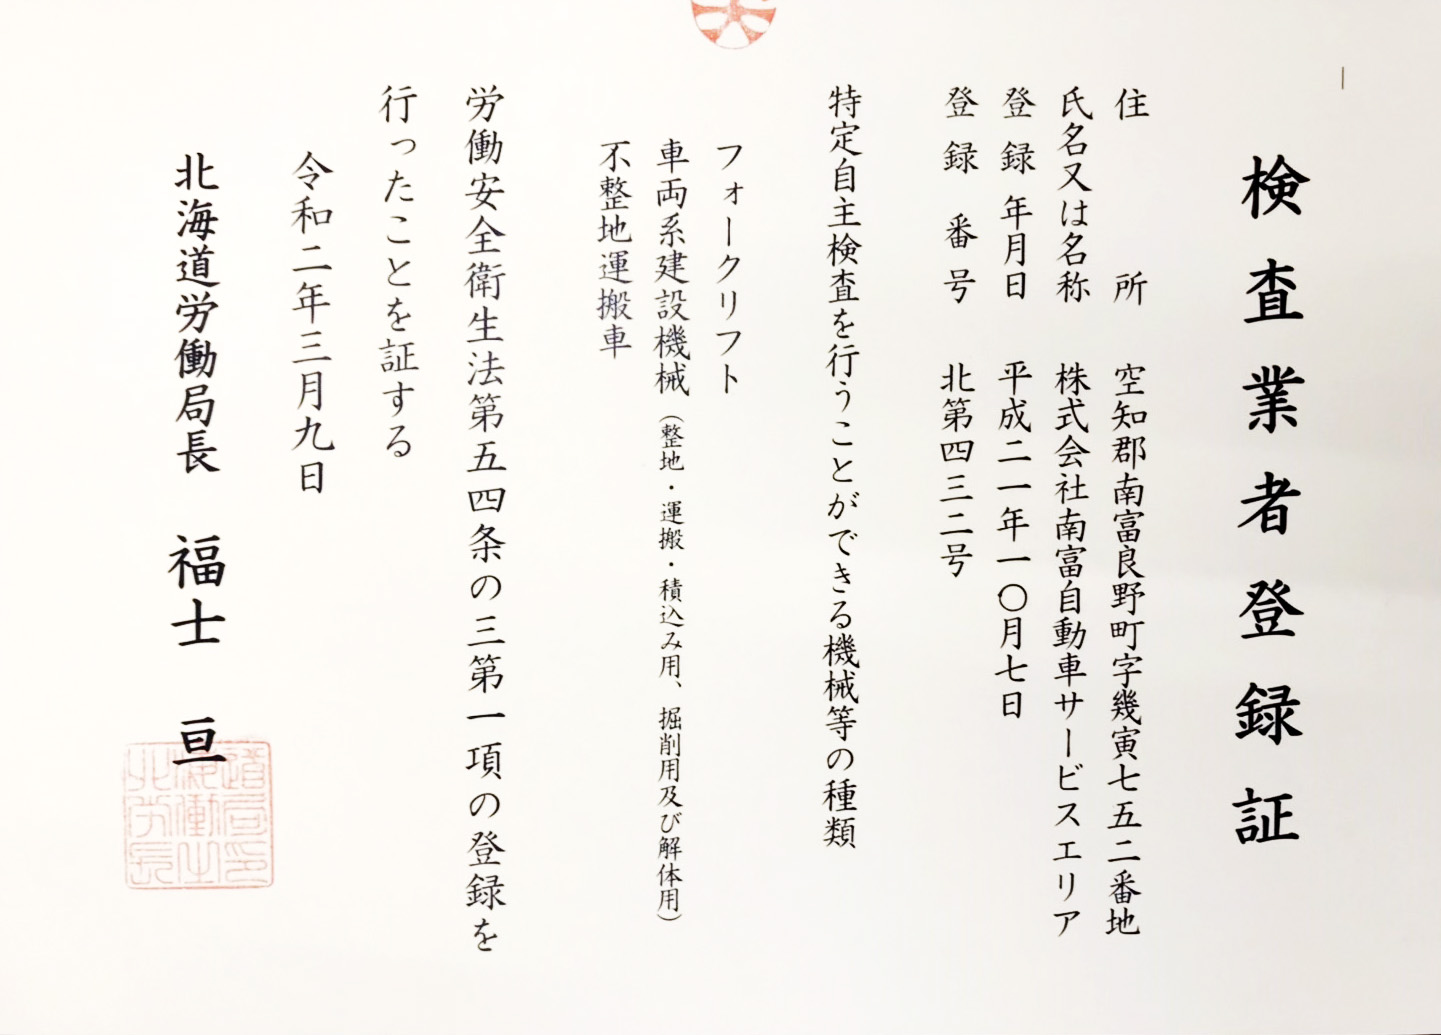 検査業者登録証
住所 空知郡南富良野町字幾寅七五二番地
氏名又は名称 株式会社南富自動車サービスエリア
登録年月日 平成二一年一〇月七日
登録番号 北第四三二号
特定自主検査を行うことができる機械等の種類
フォークリフト
車両系建設機械（整地・運搬・積込み用、掘削用及び解体用）
不整地運搬車
労働安全衛生法第五四条の三第一項の登録を
行ったことを証する
令和二年三月九日
北海道労働局長 福士 亘